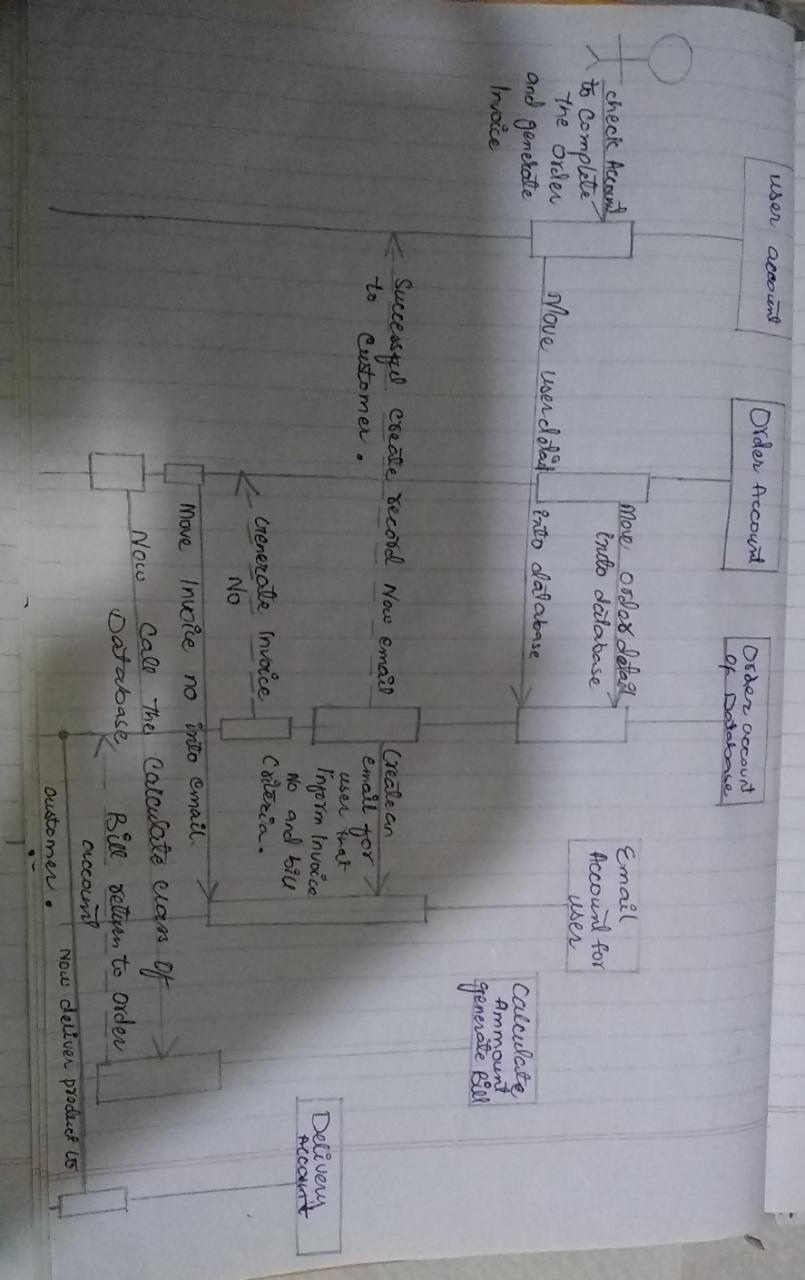 user account
Order Account
Order account
of Database
Email
Account for
user
Calculate
Ammount
generate Bill
Delivery
Account
check Account
to Complete
the order
and generate
Invoice
Move order detail
into database
Move user detail into database
Create an
email for
user that
Inform Invoice
No and bill
Criteria.
Successful create record Now email
to Customer.
Generate Invoice
No
Move Invoice no into email.
Now Call the Calculate class of
Database
Bill return to order
account
Now deliver product to
customer.